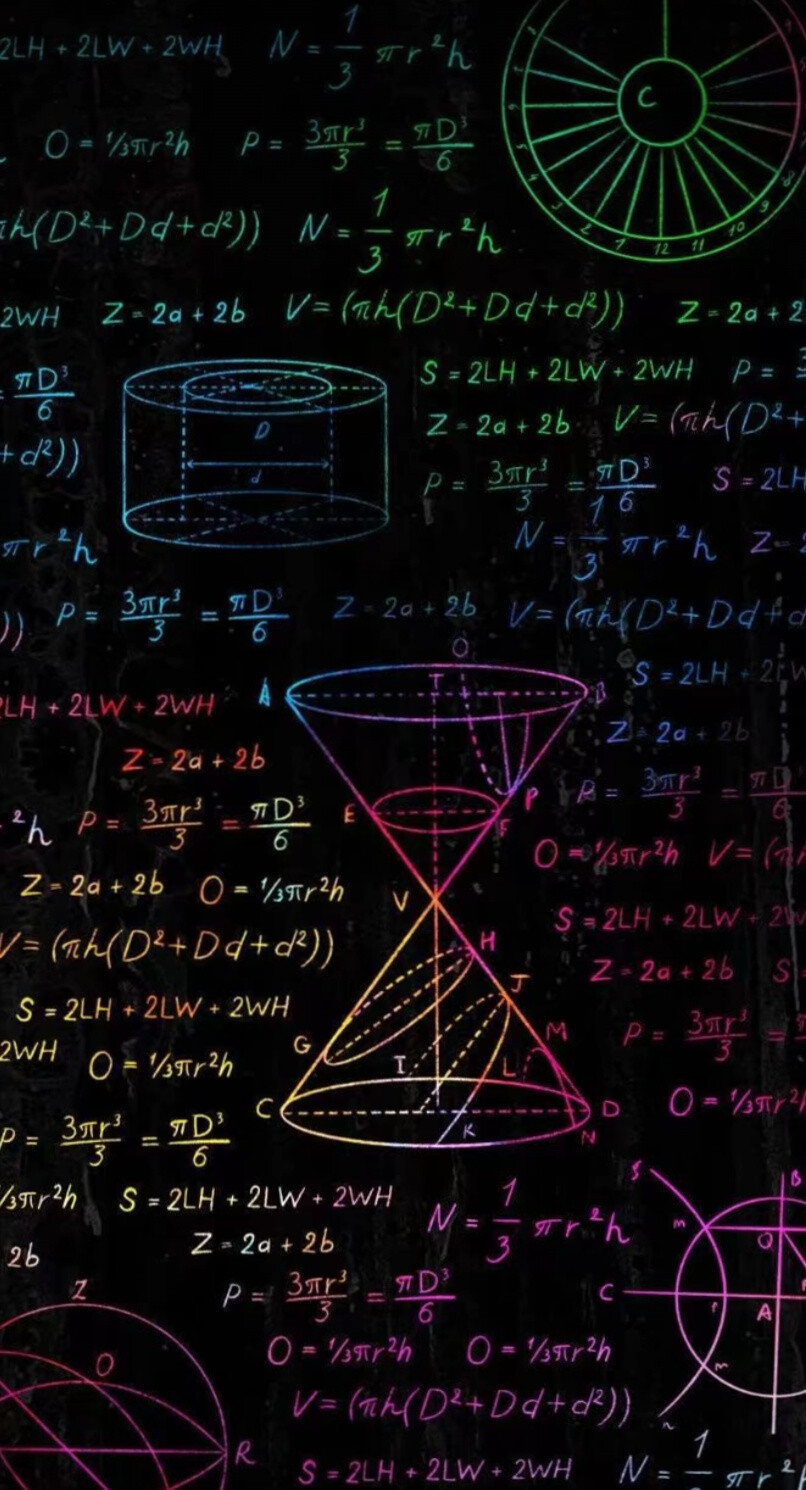 2LH + 2LW + 2WH N = 1/3 πr²h
C
O = ⅓πr²h P = 3πr³/3 = πD³/6
πh(D²+Dd+d²)) N = 1/3 πr²h
7 12 11 10 9 8
2WH Z = 2a + 2b V = (πh(D²+Dd+d²)) Z = 2a + 2
πD³/6 S = 2LH + 2LW + 2WH P =
D Z = 2a + 2b V = (πh(D²+
+d²)) d P = 3πr³/3 = πD³/6 S = 2LH
πr²h N = 1/3 πr²h Z =
)) P = 3πr³/3 = πD³/6 Z = 2a + 2b V = (πh(D²+Dd+d
O
A T B S = 2LH + 2LW
2LH + 2LW + 2WH Z = 2a + 2b
Z = 2a + 2b
P P = 3πr³/3 = πD
²h P = 3πr³/3 = πD³/6 E F
O = ⅓πr²h V = (π
Z = 2a + 2b O = ⅓πr²h V
V = (πh(D²+Dd+d²)) H S = 2LH + 2LW + 2W
J Z = 2a + 2b S
S = 2LH + 2LW + 2WH
G M P = 3πr³/3 =
2WH O = ⅓πr²h I L
C D O = ⅓πr²
P = 3πr³/3 = πD³/6 K N
⅓πr²h S = 2LH + 2LW + 2WH N = 1/3 πr²h
S B
m O
2b Z = 2a + 2b
Z P = 3πr³/3 = πD³/6 C A
O O = ⅓πr²h O = ⅓πr²h m
V = (πh(D²+Dd+d²))
R S = 2LH + 2LW + 2WH N = 1 πr²